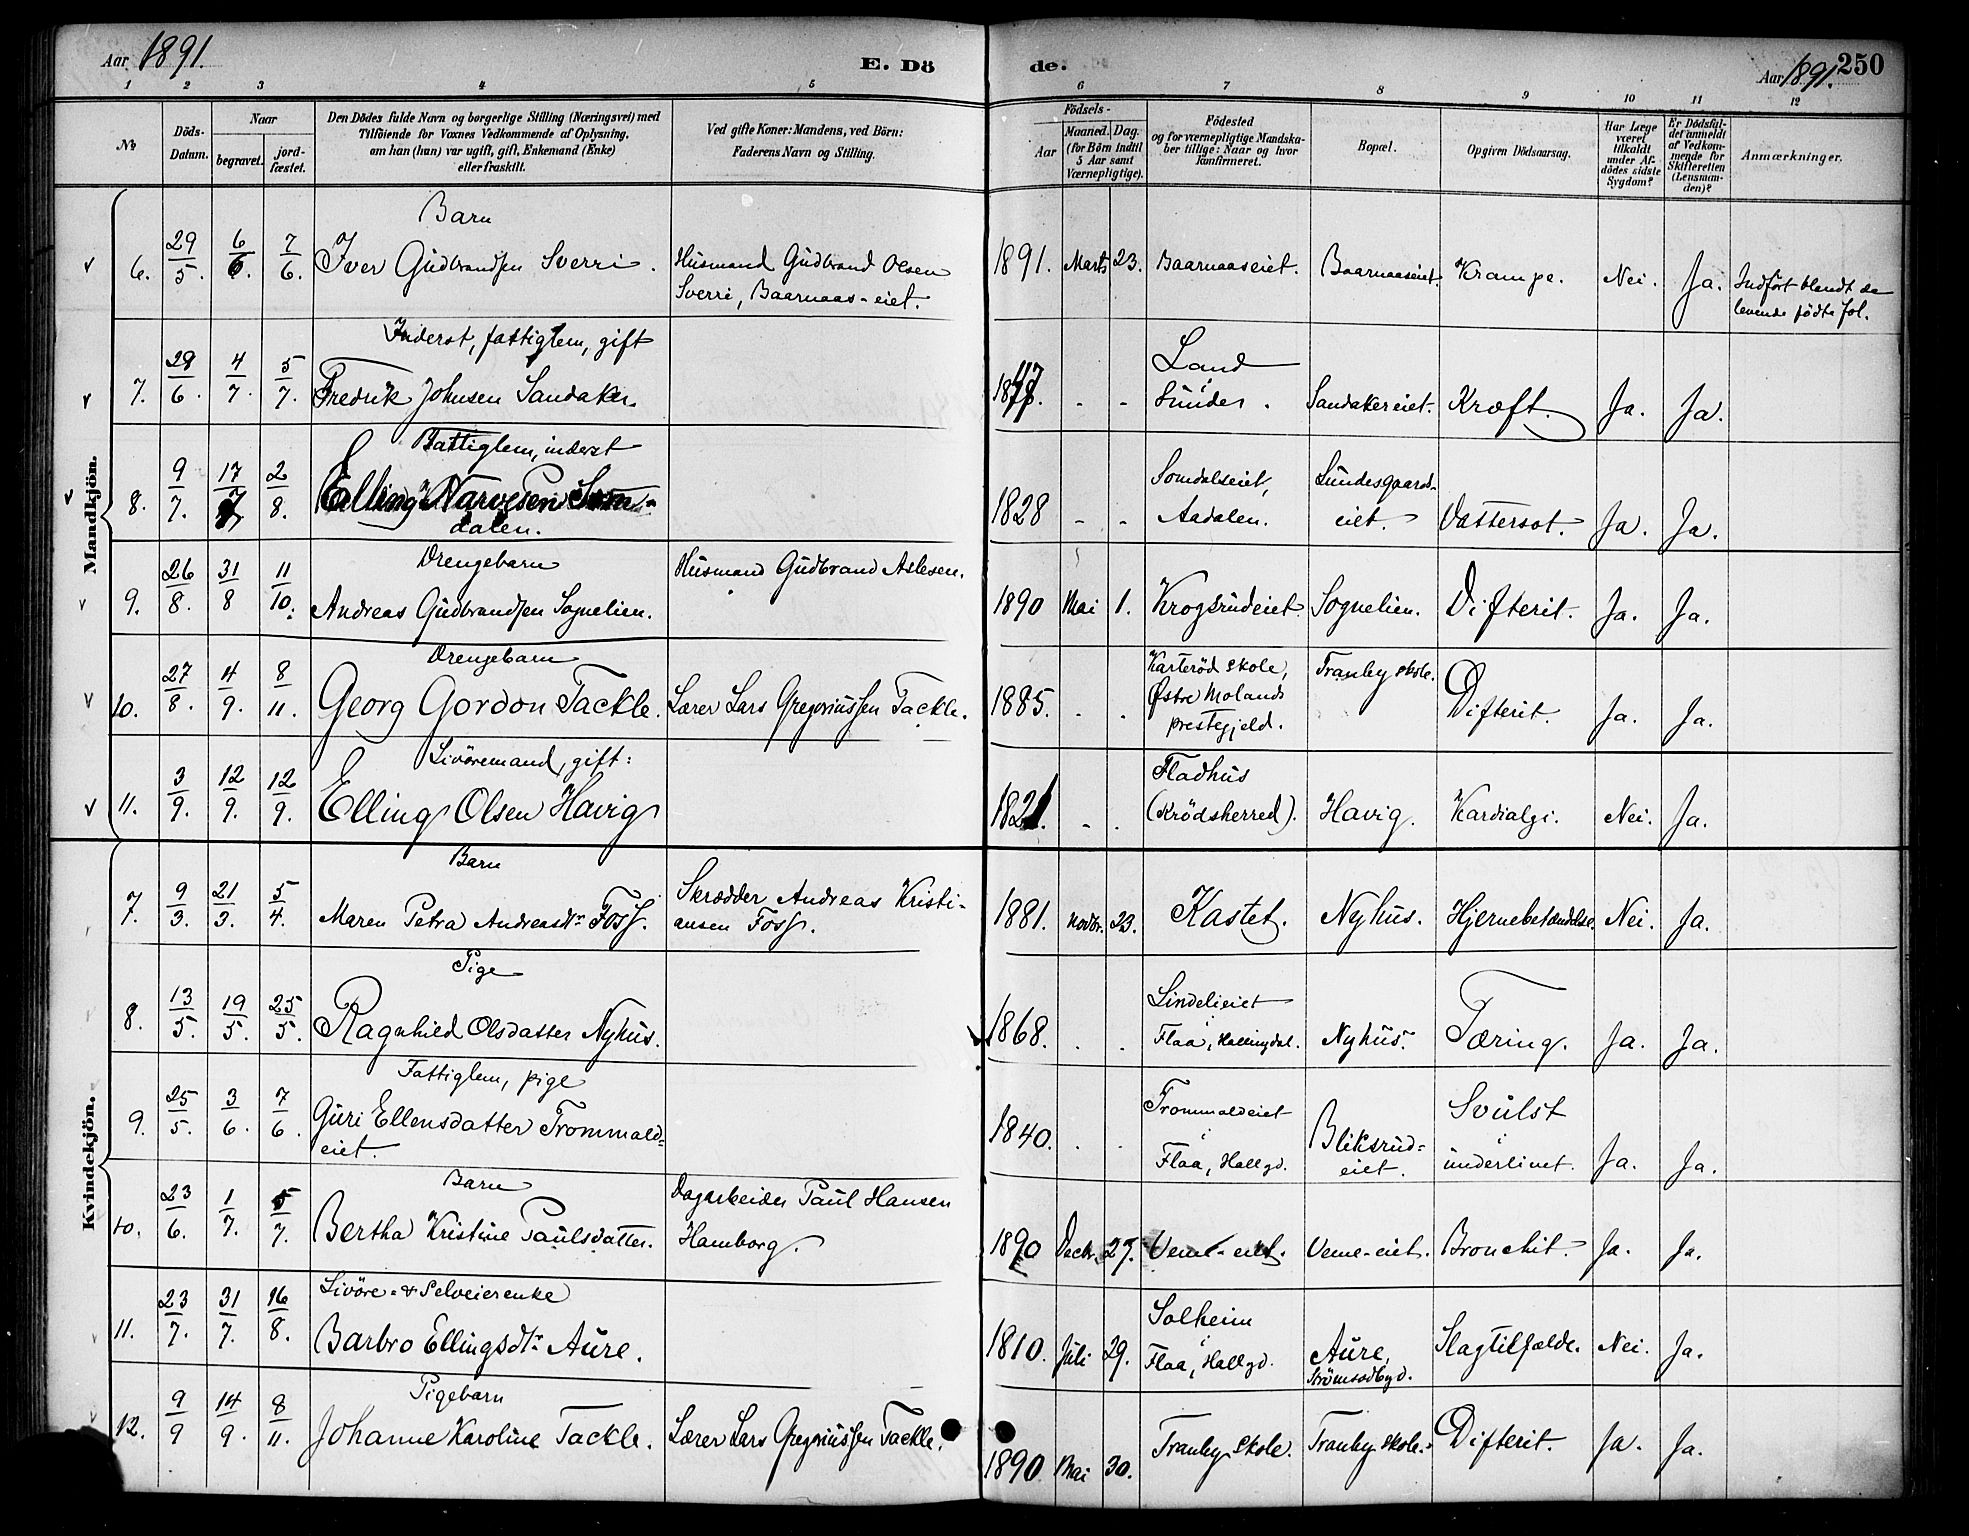 Aar 1891.
E. Dö
de.
Aar 1891.
250
1 2 3 4 5 6 7 8 9 10 11 12
No
Döds-
Datum.
Naar
begravet.
jord-
fæstet.
Den Dödes fulde Navn og borgerlige Stilling (Næringsvei) med
Tilföiende for Voxnes Vedkommende af Oplysning,
om han (hun) var ugift, gift, Enkemand (Enke)
eller fraskilt.
Ved gifte Koner: Mandens, ved Börn:
Faderens Navn og Stilling.
Födsels-
Aar
Maaned.
Dag.
(for Börn indtil
5 Aar samt
Værnepligtige).
Födested
og for værnepligtige Mandska-
ber tillige: Naar og hvor
konfirmeret.
Bopæl.
Opgiven Dödsaarsag.
Har Læge
været
tilkaldt
under Af-
dödes sidste
Sygdom?
Er Dödsfal-
det anmeldt
af Vedkom-
mende for
Skifteretten
(Lensman-
den)?
Anmærkninger.
Mandkjön.
Barn
6. 29/5. 6/6. 7/6. Iver Gudbrandsen Sverri. Husmand Gudbrand Olsen 1891. Marts 23. Baarnaaseiet. Baarnaaseiet. Krampe. Nei. Ja. Indfört blandt de
Sverri, Baarnaas-eiet. levende födte fol.
Inderst, fattiglem, gift
Land
7. 29/6. 4/7. 5/7. Fredrik Johnsen Sandaker. Sandakereiet. Kræft. Ja. Ja.
Fattiglem, inderst
Somdalseiet, Sundesgaards-
8. 9/7. 17/7 2/8. Elling Narvesen Som-
dalen. 1828 - - Aadalen. eiet. Vattersot. Ja. Ja.
Drengebarn Husmand Gudbrand Aslesen.
9. 26/8. 31/8 11/10. Andreas Gudbrandsen Sognelien. 1890 Mai 1. Krogsrudeiet Sognelien. Difterit. Ja. Ja.
Drengebarn Karteröd skole, Tranby skole.
10. 27/8. 4/9. 8/11. Georg Gordon Tackle. Lærer Lars Gregoriussen Tackle. 1885. . . Østre Molands Difterit. Ja. Ja.
prestegjeld.
Livöremand, gift: Fladhus
11. 3/9. 12/9. 12/9. Elling Olsen Havig 1821. - . (Krödsherred). Havig. Kardialgi. Nei. Ja.
Kvindekjön.
Barn Skrædder Andreas Kristi-
7. 9/3. 21/3. 5/4. Maren Petra Andreasdtr Foss. ansen Foss. 1881. Novbr. 23. Kastet. Nyhus. Hjernebetændelse. Nei. Ja.
Pige Lindelieiet
8. 13/5. 19/5. 25/5. Ragnhild Olsdatter Nyhus. 1868. . . Flaa, Hallingdal. Nyhus. Tæring. Ja. Ja.
Fattiglem, pige Trommaldeiet Svulst
9. 25/5. 3/6. 7/6. Guri Ellensdatter Trommald- 1840. . . Bliksrud- i
eiet. Flaa, Hallgd. eiet. underlivet. Ja. Ja.
Barn Dagarbeider Paul Hansen
10. 23/6. 1/7. 5/7. Bertha Kristine Paulsdatter. Hamborg. 1890 Decbr. 27. Veme-eiet. Veme-eiet. Bronchit. Ja. Ja.
Livöre- & Selveierenke Solheim
11. 23/7. 31/7. 16/8. Barbro Ellingsdtr Aure. 1810. Juli 29. Flaa, Hallgd. Aure, Slagtilfælde. Nei. Ja.
Strömsodbygd.
Pigebarn
12. 9/9 14/9. 8/11. Johanne Karoline Tackle. Lærer Lars Gregoriussen Tackle. 1890. Mai 30. Tranby skole. Tranby skole. Difterit. Ja. Ja.